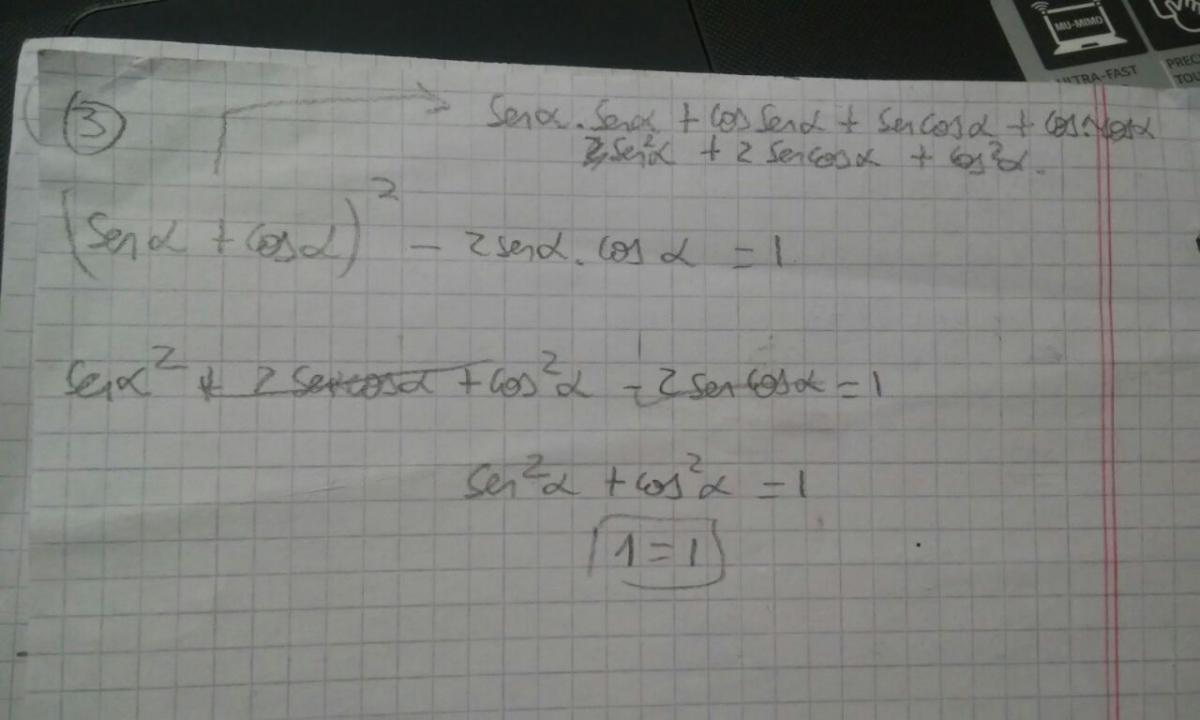 MU-MIMO
ULTRA-FAST
PREC
TOU
③
senα . senα + cos senα + sen cosα + cosα . cosα
sen²α + 2 sen cosα + cos²α.
(senα + cosα)² - 2 senα . cos α = 1
senα² + 2 sen cosα + cos²α - 2 sen cosα = 1
sen²α + cos²α = 1
1 = 1